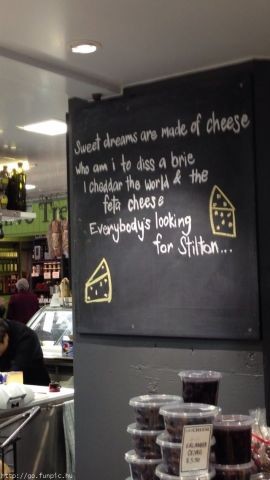 Sweet dreams are made of cheese
who am i to diss a brie
I cheddar the world & the
feta cheese
Everybody's looking
for Stilton...
Tre
CALAMATA
OLIVES
http://go.funpic.hu